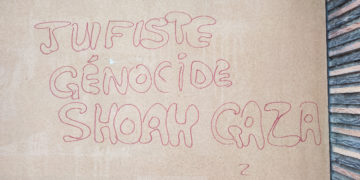 JUIFISTE
GÉNOCIDE
SHOAH GAZA
2